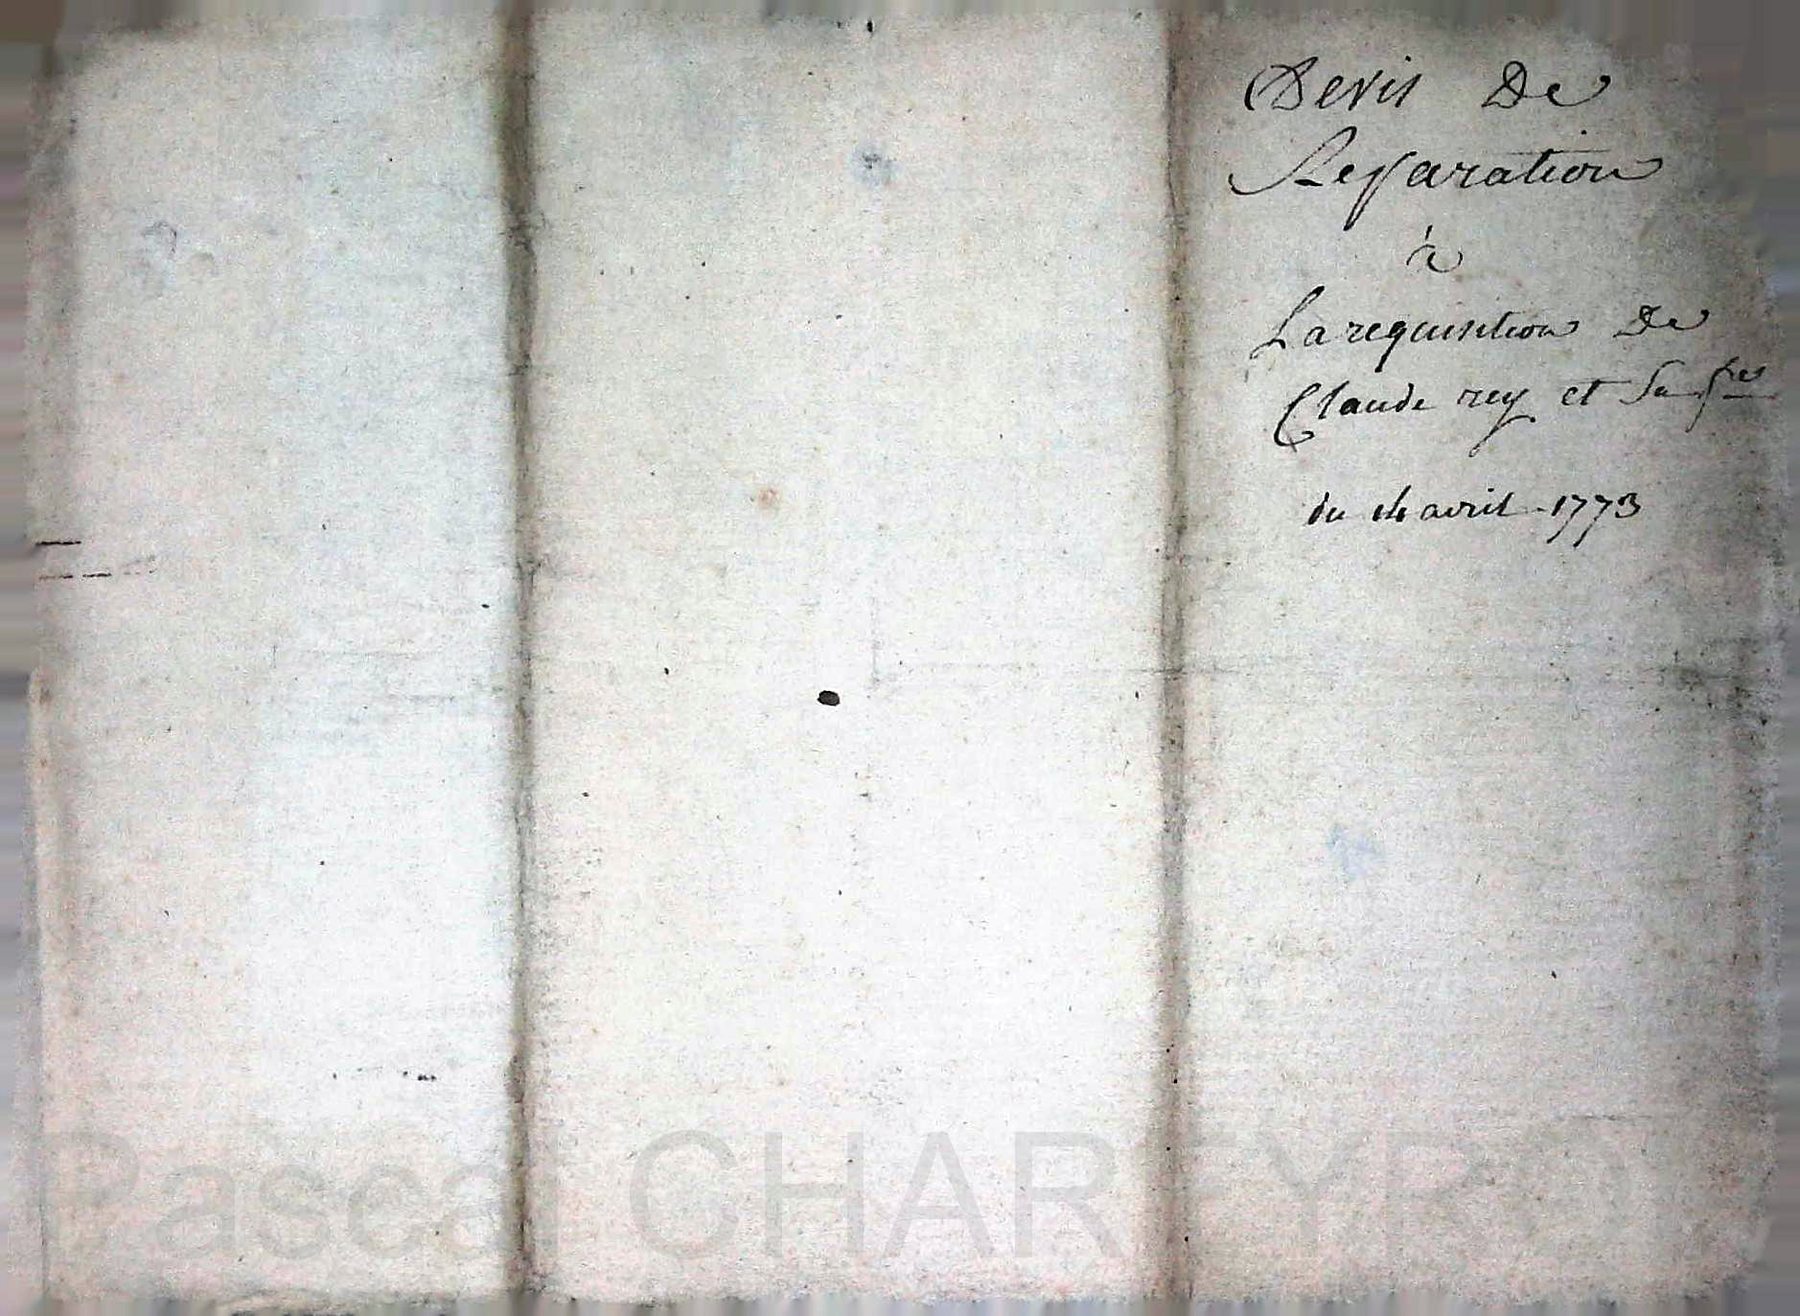 Devis De
Reparation
à
La requisition De
Claude rey et Sa
du 14 avril 1773
Pascal CHAREYRO